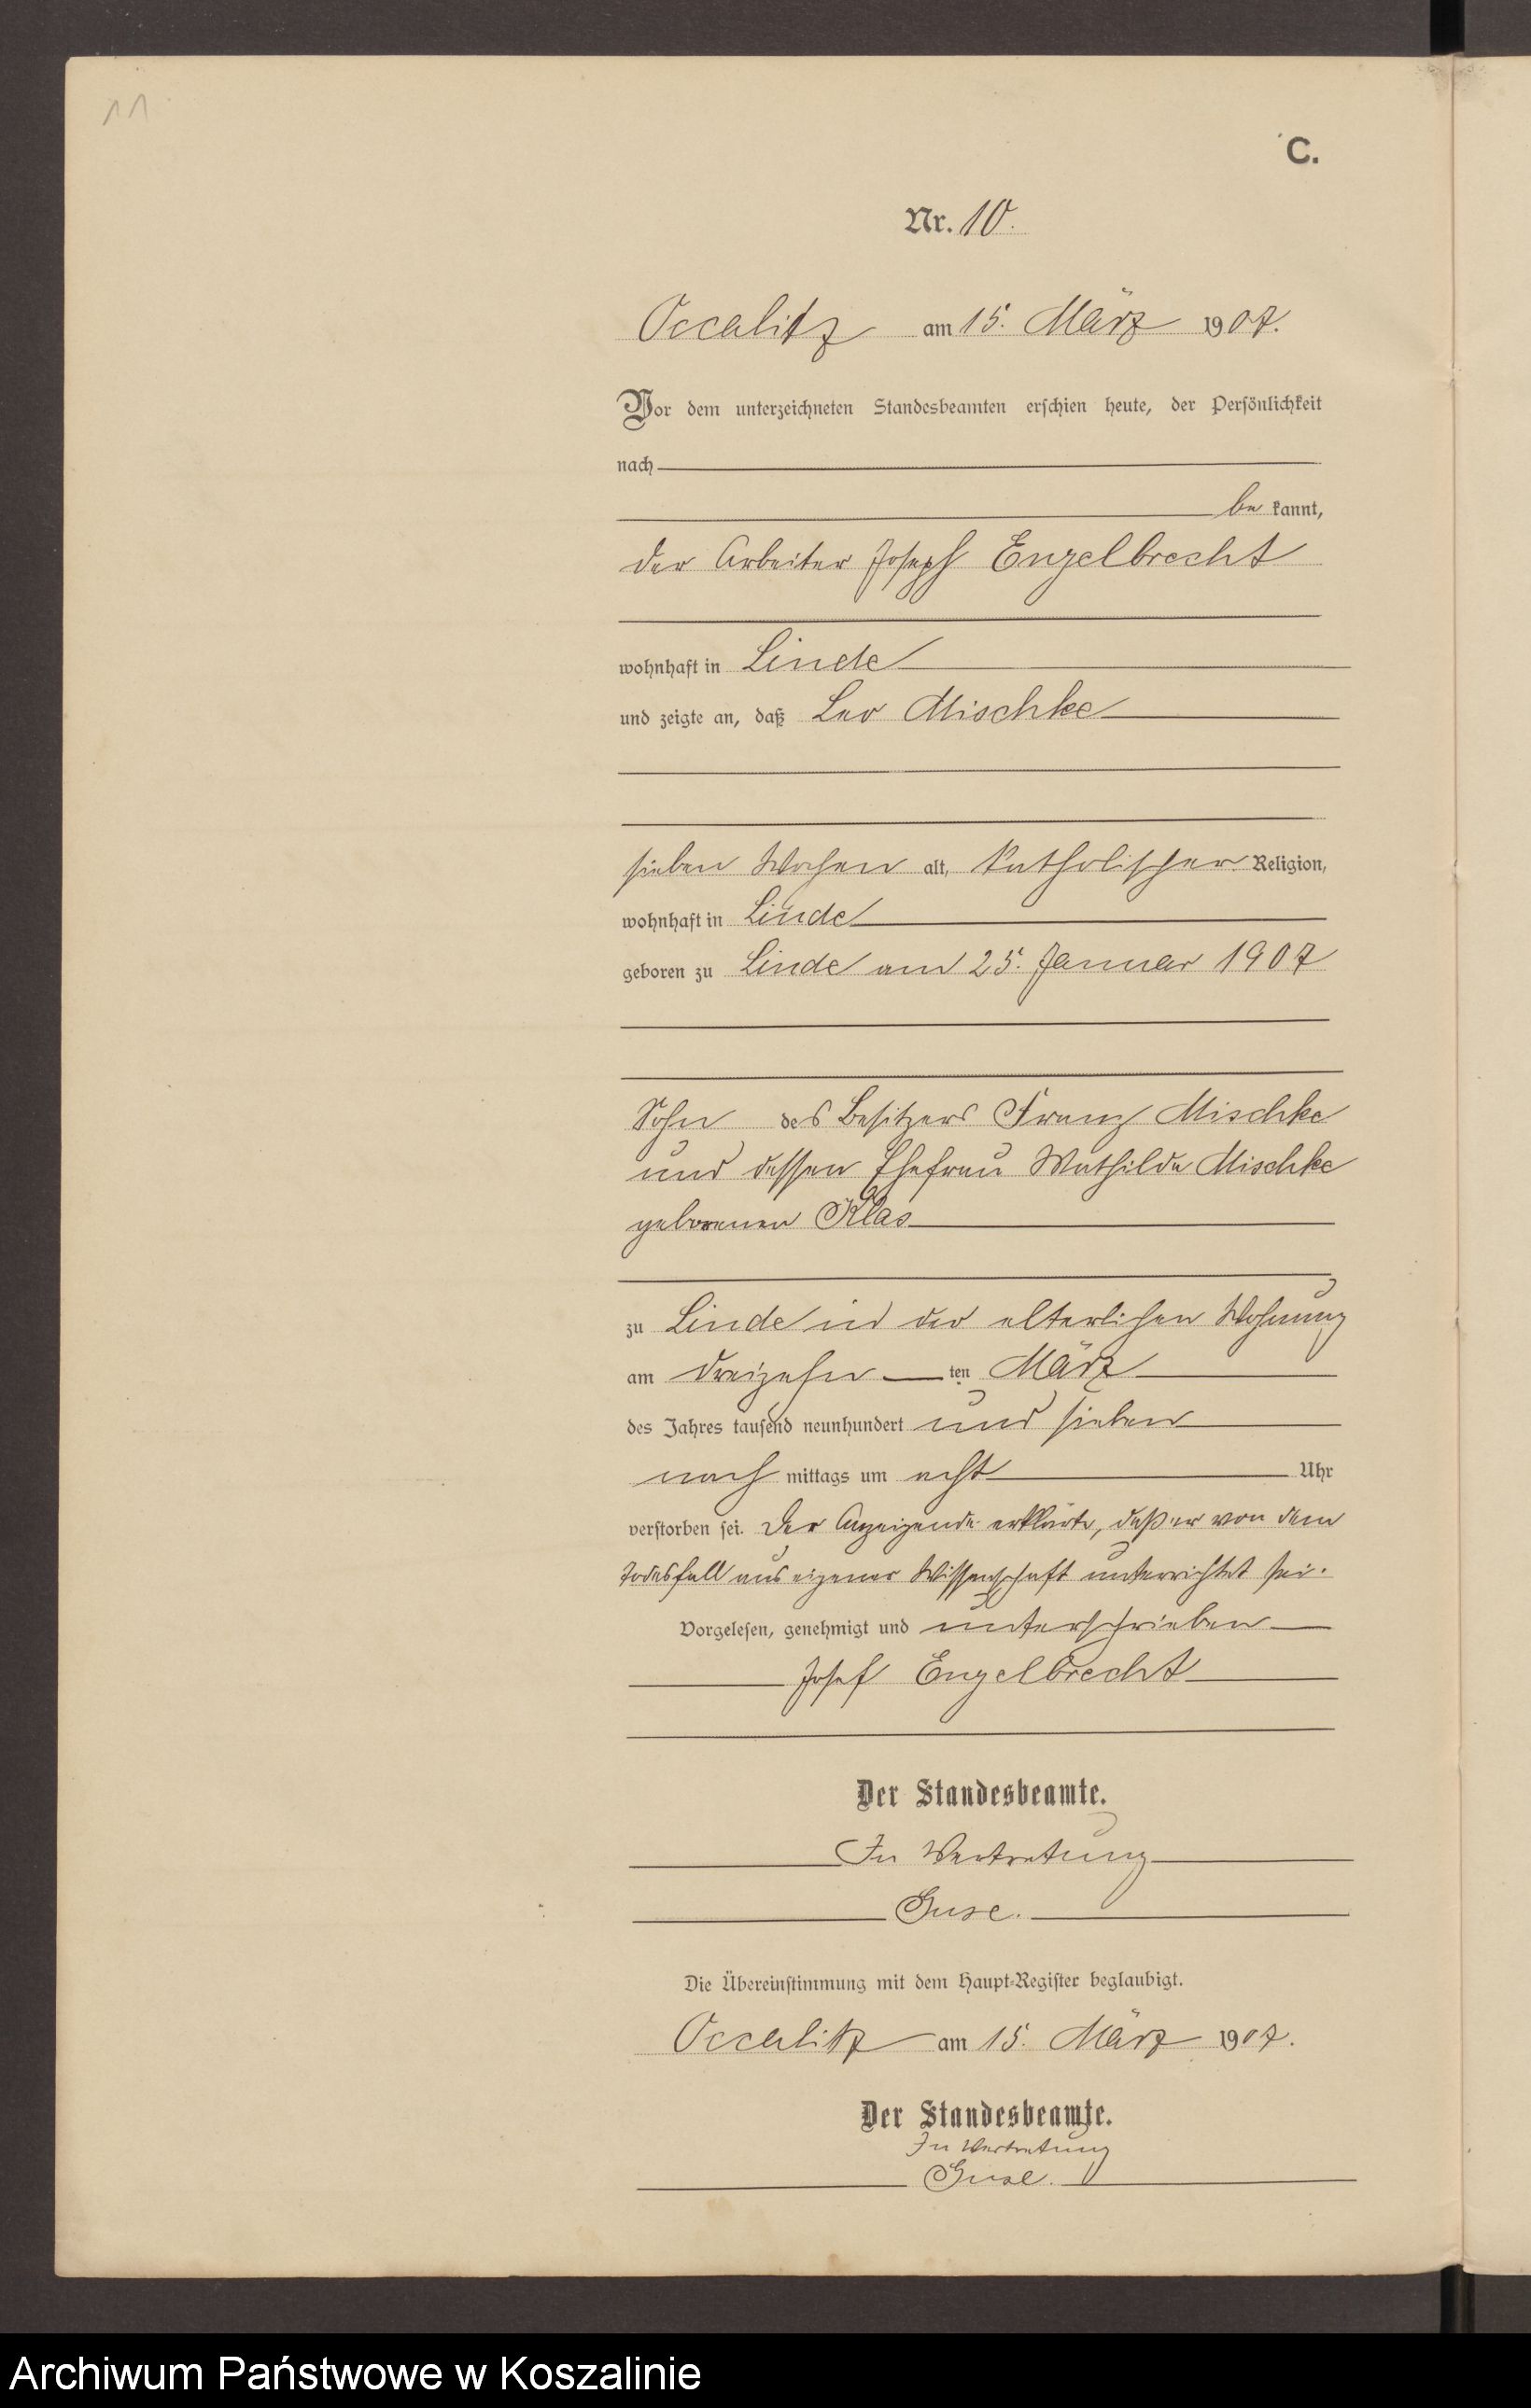 11
C.
Nr. 10.
Occalitz am 15. März 1907.
Vor dem unterzeichneten Standesbeamten erschien heute, der Persönlichkeit
nach
be kannt,
der Arbeiter Joseph Engelbrecht
wohnhaft in Linde
und zeigte an, daß Leo Mischke
sieben Wochen alt, katholischer Religion,
wohnhaft in Linde
geboren zu Linde am 25. Januar 1907
Sohn des Besitzers Franz Mischke
und dessen Ehefrau Mathilde Mischke
geborenen Klas
zu Linde in der elterlichen Wohnung
am dreizehn ten März
des Jahres tausend neunhundert und sieben
nach mittags um acht Uhr
verstorben sei. Der Anzeigende erklärte, daß er von dem
Todesfall aus eigener Wissenschaft unterrichtet sei.
Vorgelesen, genehmigt und unterschrieben
Josef Engelbrecht
Der Standesbeamte.
In Vertretung
Guse.
Die Übereinstimmung mit dem Haupt-Register beglaubigt.
Occalitz am 15. März 1907.
Der Standesbeamte.
In Vertretung
Guse.
Archiwum Państwowe w Koszalinie